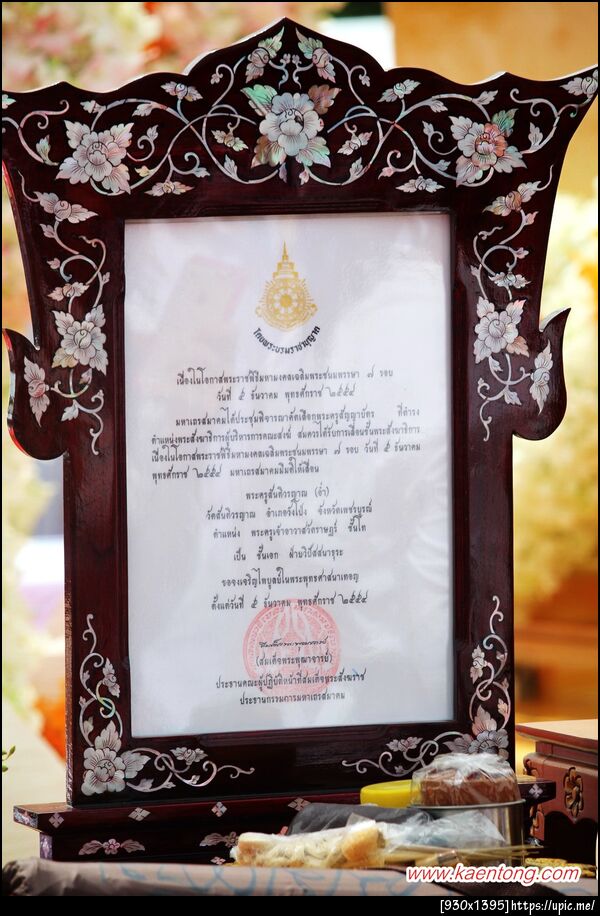 โดยพระบรมราชานุญาต
เนื่องในโอกาสพระราชพิธีมหามงคลเฉลิมพระชนมพรรษา ๗ รอบ
วันที่ ๕ ธันวาคม พุทธศักราช ๒๕๕๔
มหาเถรสมาคมได้ประชุมพิจารณาคัดเลือกพระครูสัญญาบัตร ที่ดำรง
ตำแหน่งพระสังฆาธิการผู้บริหารการคณะสงฆ์ สมควรได้รับการเลื่อนชั้นพระสังฆาธิการ
เนื่องในโอกาสพระราชพิธีมหามงคลเฉลิมพระชนมพรรษา ๗ รอบ วันที่ ๕ ธันวาคม
พุทธศักราช ๒๕๕๔ มหาเถรสมาคมมีมติให้เลื่อน
พระครูสันติวรญาณ (อ่ำ)
วัดสันติวรญาณ อำเภอวังโป่ง จังหวัดเพชรบูรณ์
ตำแหน่ง พระครูเจ้าอาวาสวัดราษฎร์ ชั้นโท
เป็น ชั้นเอก ฝ่ายวิปัสสนาธุระ
ขอจงเจริญไพบูลย์ในพระพุทธศาสนาเทอญ
ตั้งแต่วันที่ ๕ ธันวาคม พุทธศักราช ๒๕๕๔
(สมเด็จพระพุฒาจารย์)
ประธานคณะผู้ปฏิบัติหน้าที่สมเด็จพระสังฆราช
ประธานกรรมการมหาเถรสมาคม
www.kaentong.com
[930x1395]https://upic.me/